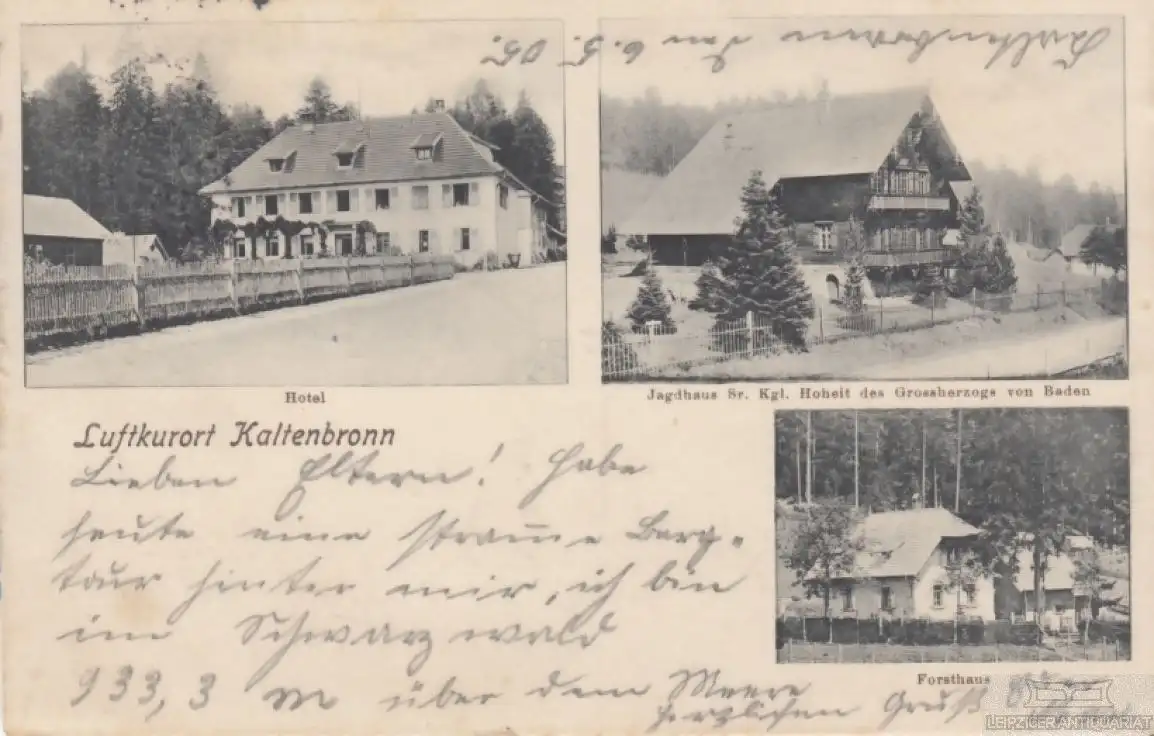 Kaltenbronn den 6. 5. 05.
Hotel
Jagdhaus Sr. Kgl. Hoheit des Grossherzogs von Baden
Luftkurort Kaltenbronn
Lieben Eltern! Habe
heute eine stram̄e Berg-
tour hinter mir, ich bin
im Schwarzwald
933,3 m über dem Meere
herzlichen Gruß
Forsthaus
LEIPZIGER ANTIQUARIAT